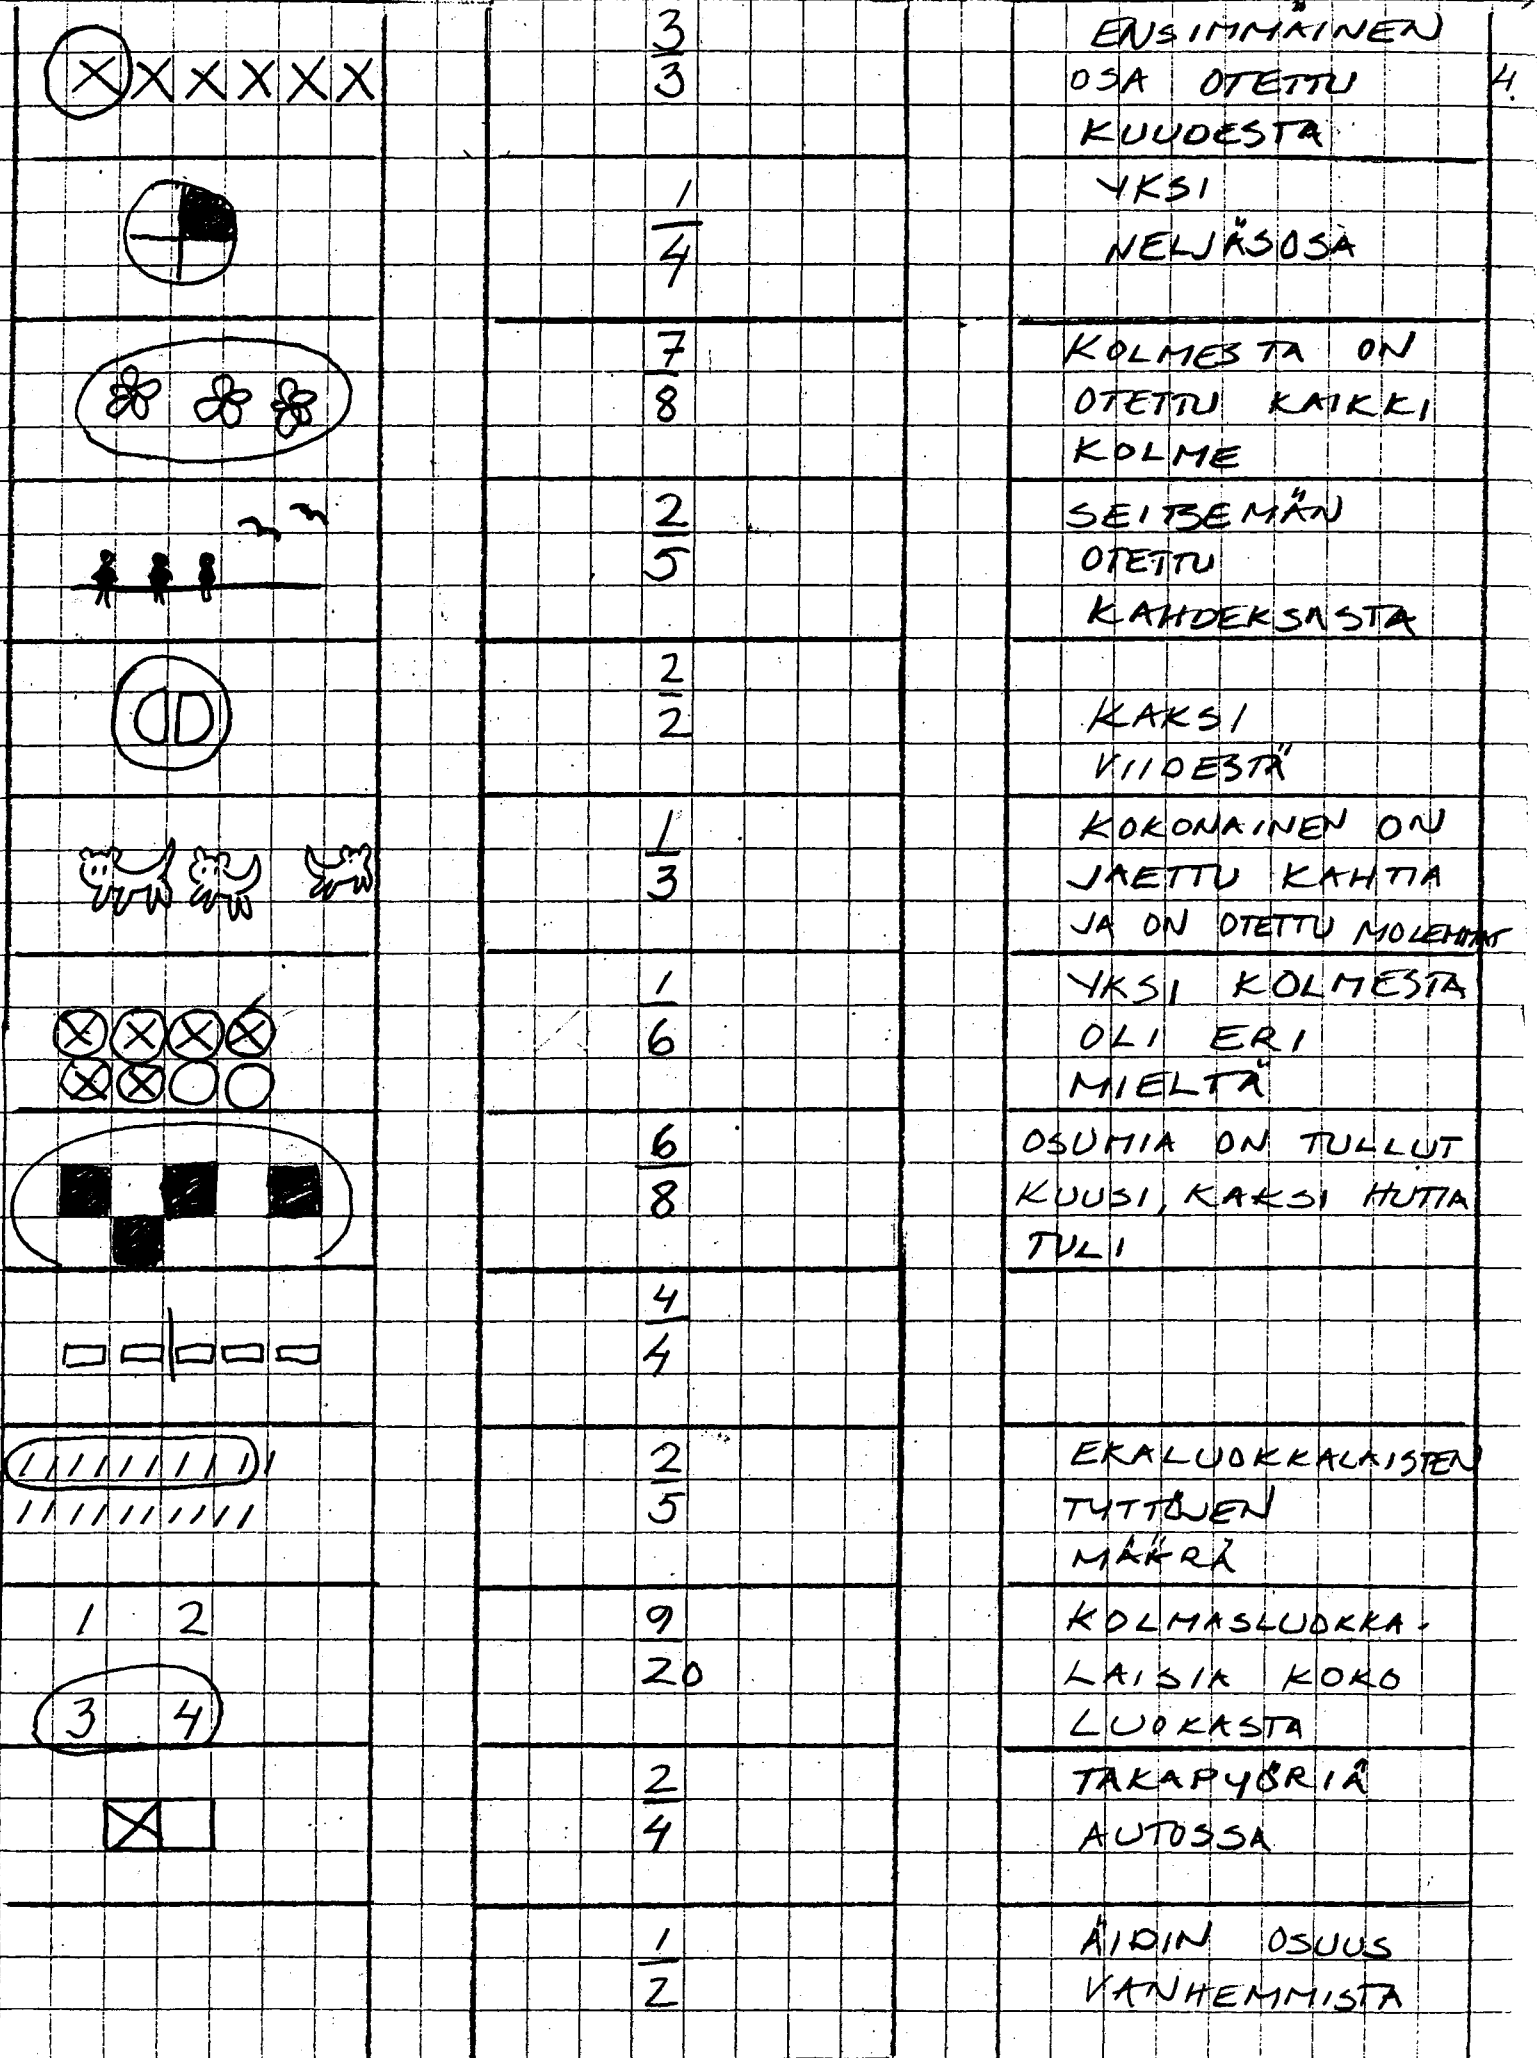 1 2
3 4
3
3
1
4
7
8
2
5
2
2
1
3
1
6
6
8
4
4
2
5
9
20
2
4
1
2
ENSIMMÄINEN
OSA OTETTU
KUUDESTA
4.
YKSI
NELJÄSOSA
KOLMESTA ON
OTETTU KAIKKI
KOLME
SEITSEMÄN
OTETTU
KAHDEKSASTA
KAKSI
VIIDESTÄ
KOKONAINEN ON
JAETTU KAHTIA
JA ON OTETTU MOLEMMAT
YKSI KOLMESTA
OLI ERI
MIELTÄ
OSUMIA ON TULLUT
KUUSI, KAKSI HUTIA
TULI
EKALUOKKALAISTEN
TYTTÖJEN
MÄÄRÄ
KOLMASLUOKKA-
LAISIA KOKO
LUOKASTA
TAKAPYÖRIÄ
AUTOSSA
ÄIDIN OSUUS
VANHEMMISTA